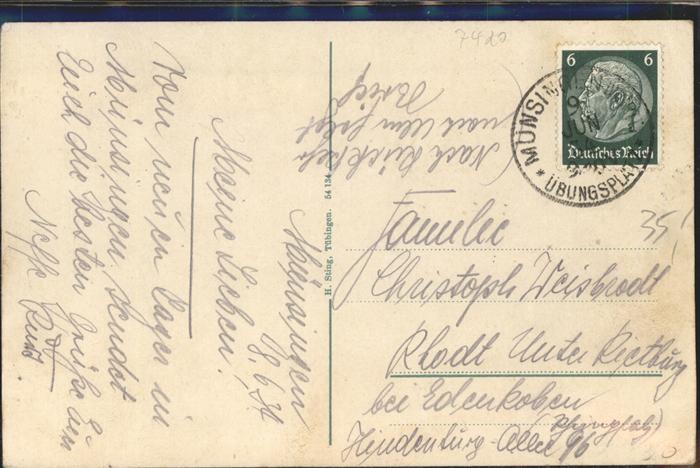 7420
6 6
Deutsches Reich
MÜNSINGEN
9 JUN
ÜBUNGSPLATZ
Münsingen
8.6.34
Meine Lieben!
Vom neuen Lager in
Münsingen sendet
Euch die besten Grüße Eur
Neffe Kurt
(Nach Rückkehr
nach Ulm folgt
Brief
H. Sting, Tübingen. 54 134
Familie
Christoph Weisbrodt
Rhodt Unter Rietburg
bei Edenkoben
(Rheinpfalz)
Hindenburg-Allee 96
35,